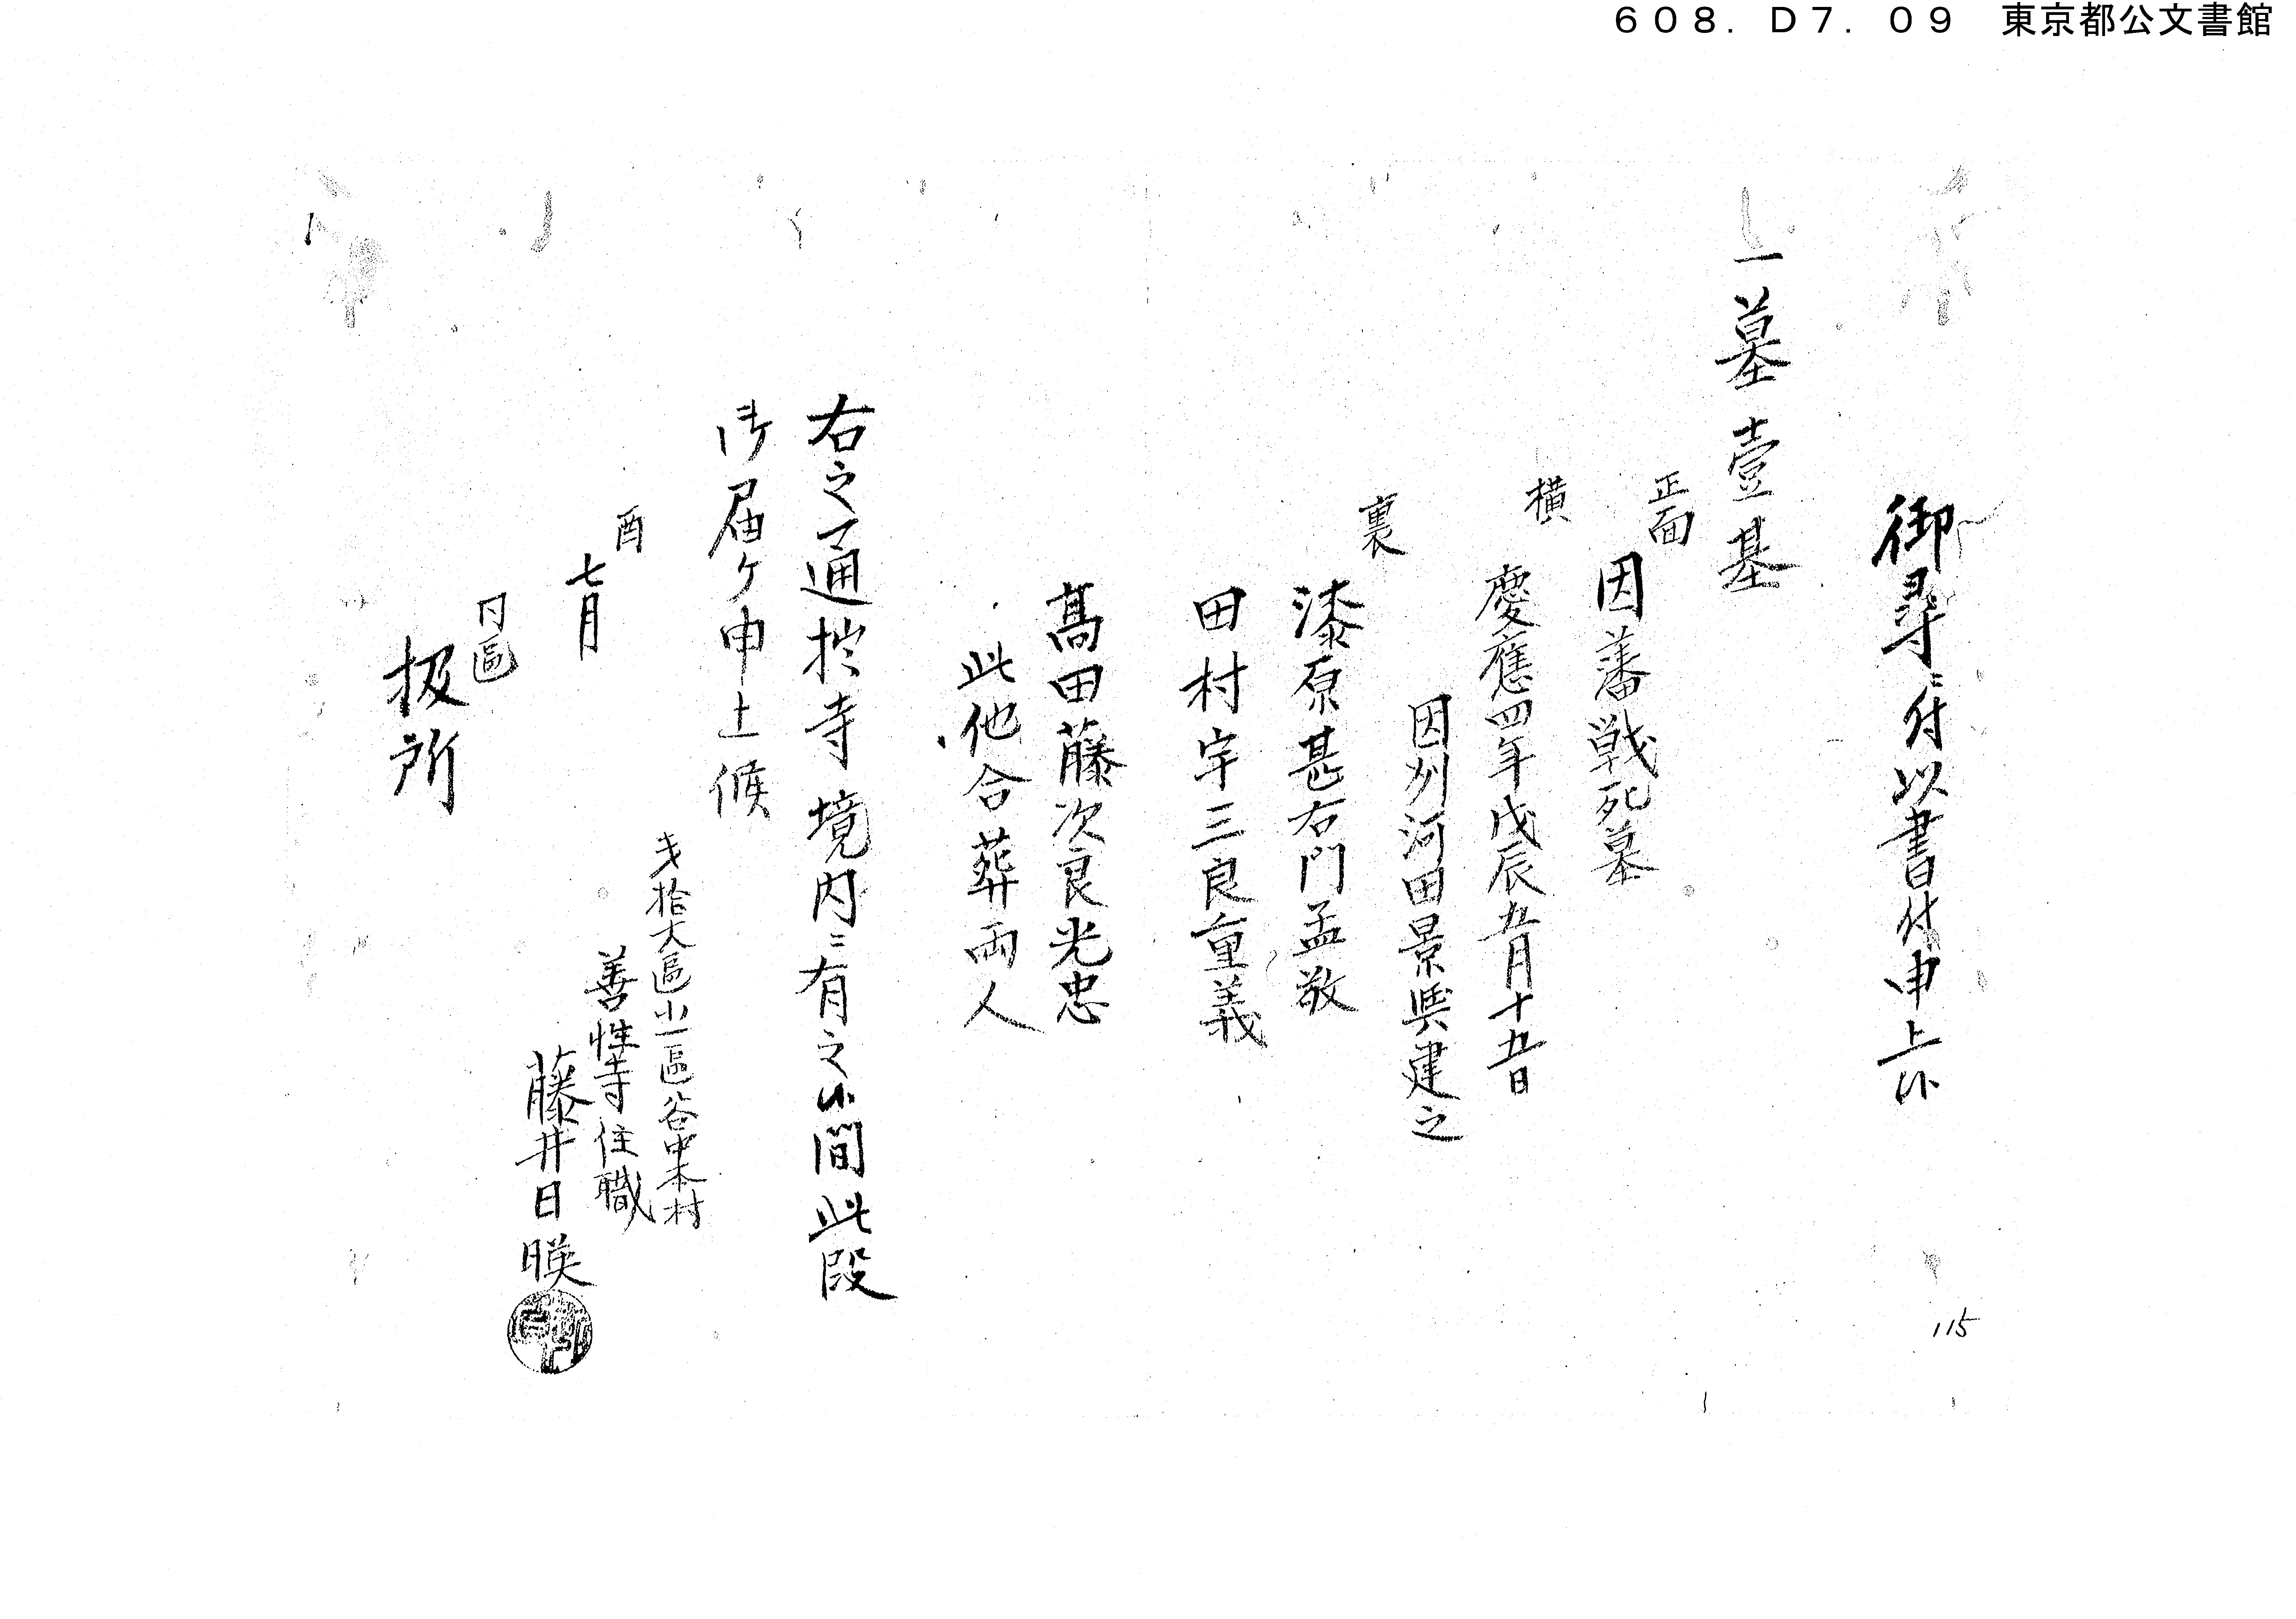 608.D7.09 東京都公文書館
御尋ニ付以書付申上候
一墓壹基
正面
因藩戦死墓
横
慶應四年戊辰五月十五日
因州河田景與建之
裏
漆原甚右門孟敬
田村宇三良重義
髙田藤次良光忠
此他合葬両人
右之通拙寺境内ニ有之候間此段
御届ケ申上候
弐拾大區小一區谷中本村
善性寺住職
藤井日暎
酉
七月
同區
扱所
115